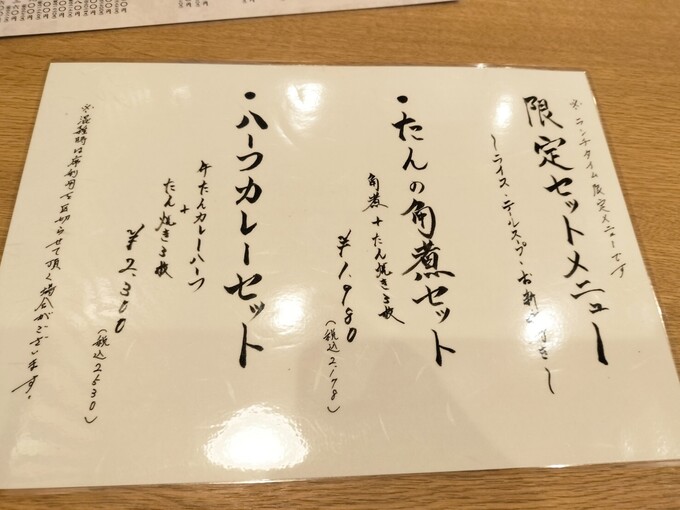 ※ランチタイム限定メニューです
限定セットメニュー
ーライス・テールスープ・お新香付きー
・たんの角煮セット
角煮+たん焼き3枚
¥1,980
（税込2,178）
・ハーフカレーセット
牛たんカレーハーフ
+
たん焼き3枚
¥2,300
（税込2530）
※混雑時は御利用を区切らせて頂く場合がございます。